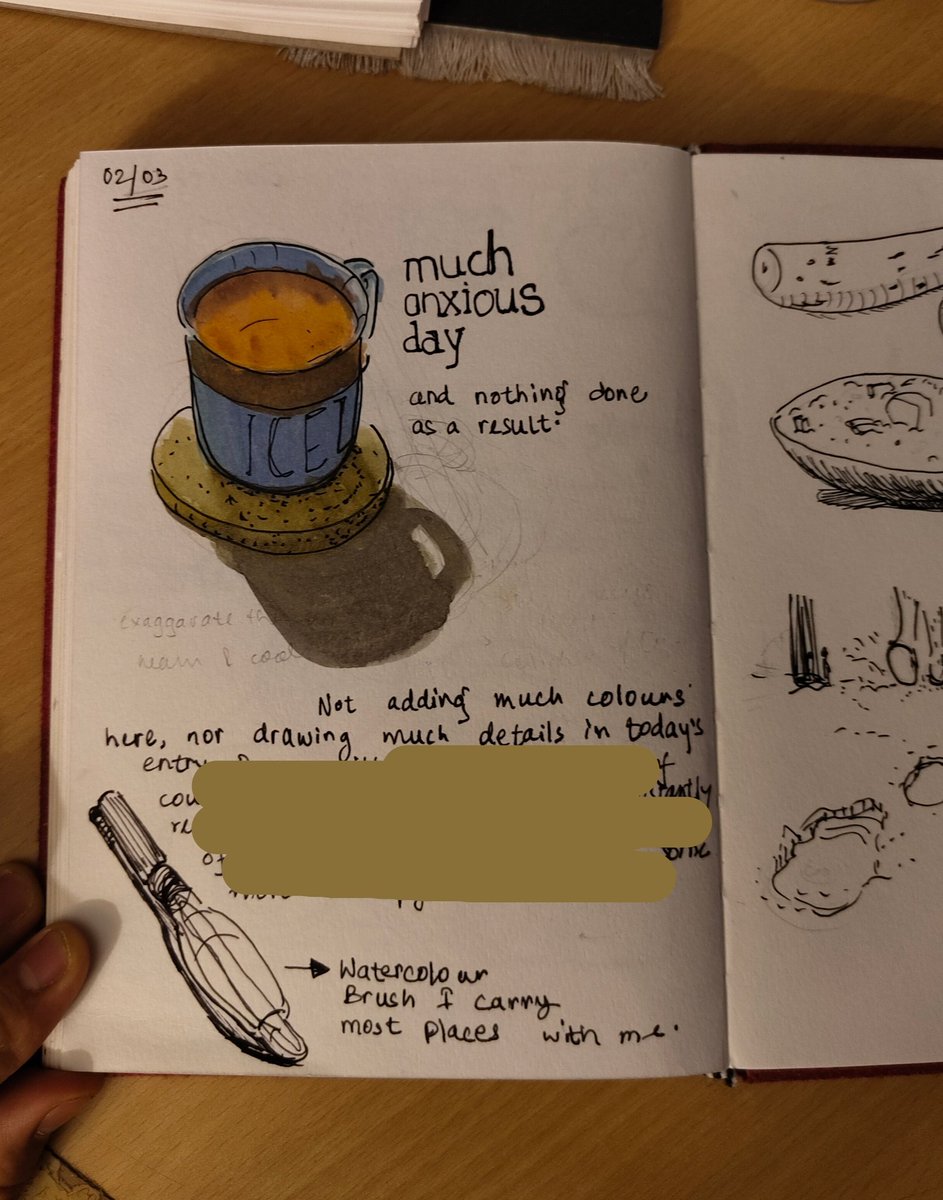 02/03
much
anxious
day
and nothing done
as a result.
ICEL
exaggarate
Not adding much colours
here, nor drawing much details in today's
entry
of
Watercolour
Brush I carry
most places with me.